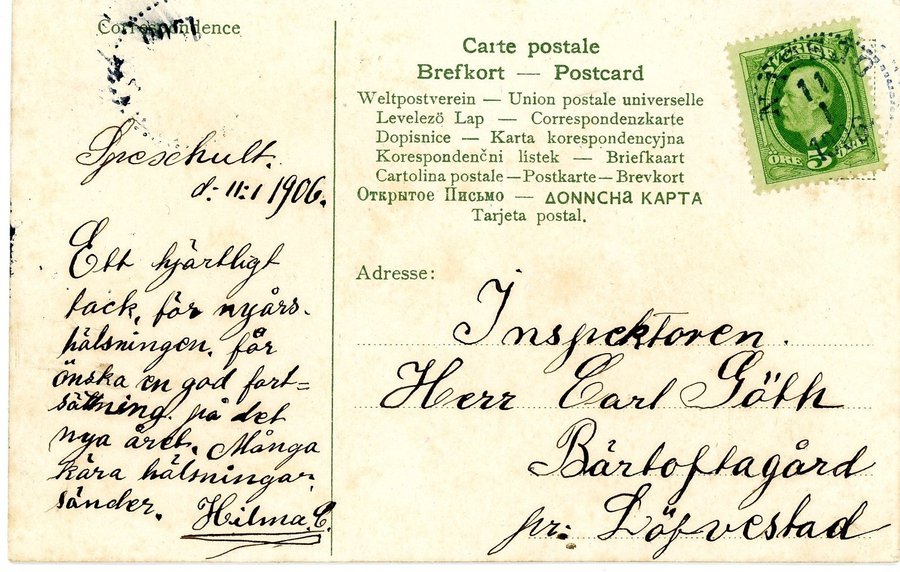 Correspondence
Carte postale
Brefkort — Postcard
Weltpostverein — Union postale universelle
Levelezö Lap — Correspondenzkarte
Dopisnice — Karta korespondencyjna
Korespondenčni listek — Briefkaart
Cartolina postale — Postkarte — Brevkort
Открытое Письмо — ΔΟΝΝCHa КАРТА
Tarjeta postal.
SVERIGE
ÖRE 5 ÖRE
11
1
Speschult.
d. 11:1 1906.
Ett hjärtligt
tack, för nyårs-
hälsningen. får
önska en god fort=
sättning. på det
nya året. Många
kära hälsningar.
sänder.
Hilma. C.
Adresse:
Inspektoren.
Herr Carl Göth
Bärtoftagård
pr: Löfvestad